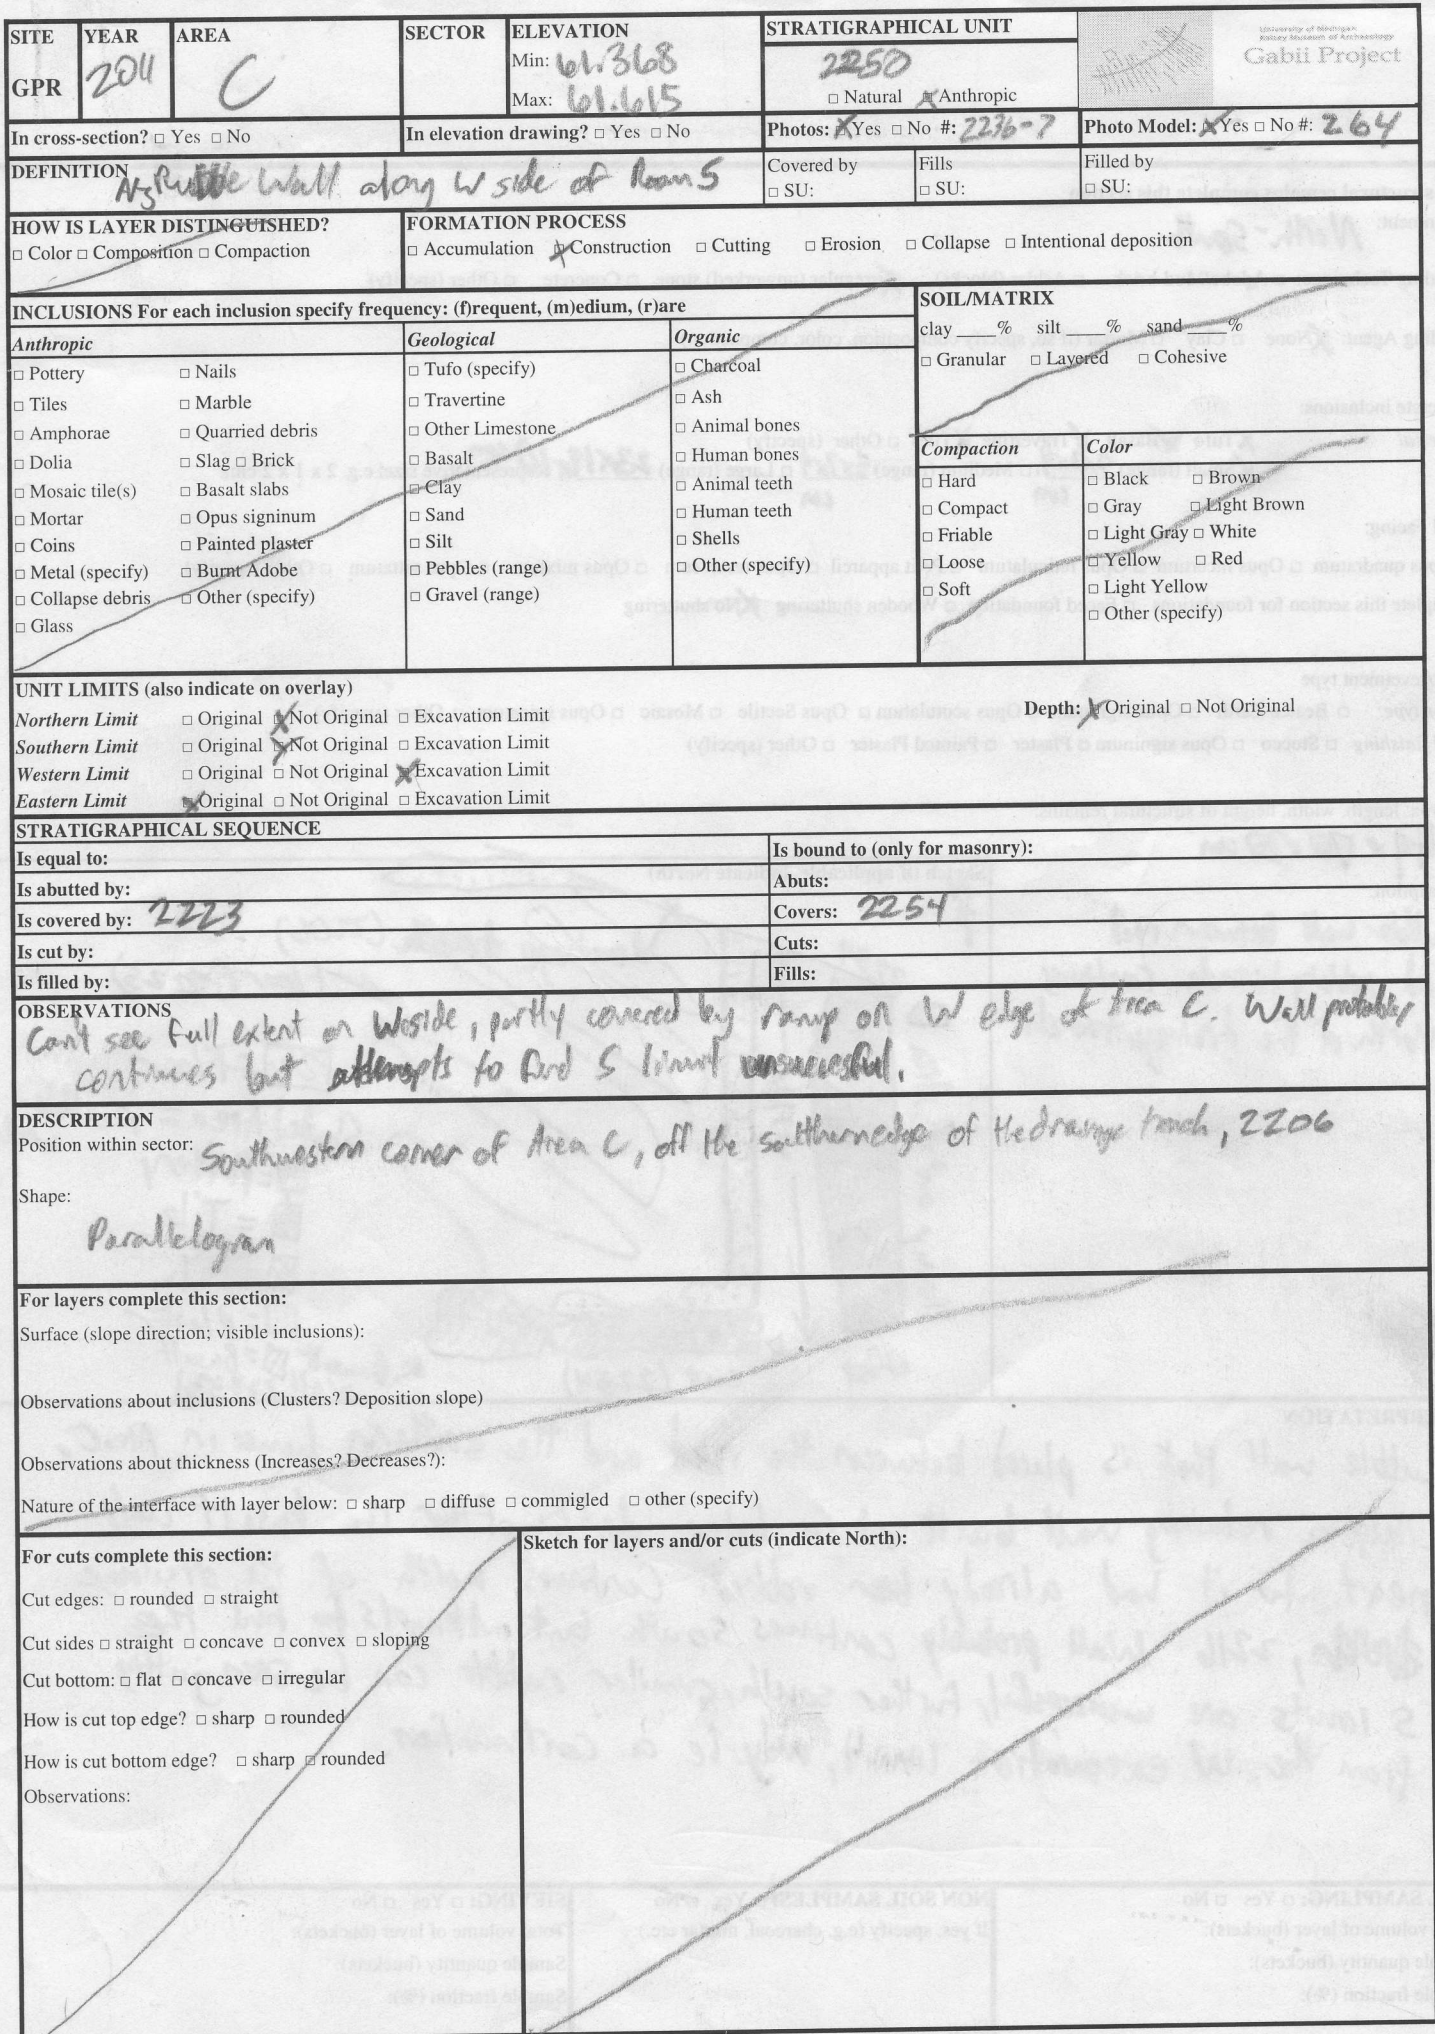 SITE YEAR AREA SECTOR ELEVATION STRATIGRAPHICAL UNIT
GPR 2011 C Min: 61.368 Max: 61.615 2250
□ Natural ☒ Anthropic
University of Michigan
Kelsey Museum of Archaeology
Gabii Project
In cross-section? □ Yes □ No In elevation drawing? □ Yes □ No Photos: ☒ Yes □ No #: 2236-7 Photo Model: ☒ Yes □ No #: 264
DEFINITION NS Rubble Wall along W side of Room 5
Covered by □ SU: Fills □ SU: Filled by □ SU:
HOW IS LAYER DISTINGUISHED?
□ Color □ Composition □ Compaction
FORMATION PROCESS
□ Accumulation ☒ Construction □ Cutting □ Erosion □ Collapse □ Intentional deposition
INCLUSIONS For each inclusion specify frequency: (f)requent, (m)edium, (r)are
Anthropic
□ Pottery □ Nails
□ Tiles □ Marble
□ Amphorae □ Quarried debris
□ Dolia □ Slag □ Brick
□ Mosaic tile(s) □ Basalt slabs
□ Mortar □ Opus signinum
□ Coins □ Painted plaster
□ Metal (specify) □ Burnt Adobe
□ Collapse debris □ Other (specify)
□ Glass
Geological
□ Tufo (specify)
□ Travertine
□ Other Limestone
□ Basalt
□ Clay
□ Sand
□ Silt
□ Pebbles (range)
□ Gravel (range)
Organic
□ Charcoal
□ Ash
□ Animal bones
□ Human bones
□ Animal teeth
□ Human teeth
□ Shells
□ Other (specify)
SOIL/MATRIX
clay ____% silt ____% sand ____%
□ Granular □ Layered □ Cohesive
Compaction
□ Hard
□ Compact
□ Friable
□ Loose
□ Soft
Color
□ Black □ Brown
□ Gray □ Light Brown
□ Light Gray □ White
□ Yellow □ Red
□ Light Yellow
□ Other (specify)
UNIT LIMITS (also indicate on overlay)
Northern Limit □ Original ☒ Not Original □ Excavation Limit Depth: ☒ Original □ Not Original
Southern Limit □ Original ☒ Not Original □ Excavation Limit
Western Limit □ Original □ Not Original ☒ Excavation Limit
Eastern Limit ☒ Original □ Not Original □ Excavation Limit
STRATIGRAPHICAL SEQUENCE
Is equal to: Is bound to (only for masonry):
Is abutted by: Abuts:
Is covered by: 2223 Covers: 2254
Is cut by: Cuts:
Is filled by: Fills:
OBSERVATIONS
Can't see full extent on W side, partly covered by ramp on W edge of Area C. Wall probably
continues but attempts to find S limit unsuccessful.
DESCRIPTION
Position within sector: Southwestern corner of Area C, off the southern edge of the drainage trench, 2206
Shape:
Parallelogram
For layers complete this section:
Surface (slope direction; visible inclusions):
Observations about inclusions (Clusters? Deposition slope)
Observations about thickness (Increases? Decreases?):
Nature of the interface with layer below: □ sharp □ diffuse □ commigled □ other (specify)
For cuts complete this section:
Cut edges: □ rounded □ straight
Cut sides □ straight □ concave □ convex □ sloping
Cut bottom: □ flat □ concave □ irregular
How is cut top edge? □ sharp □ rounded
How is cut bottom edge? □ sharp □ rounded
Observations:
Sketch for layers and/or cuts (indicate North):